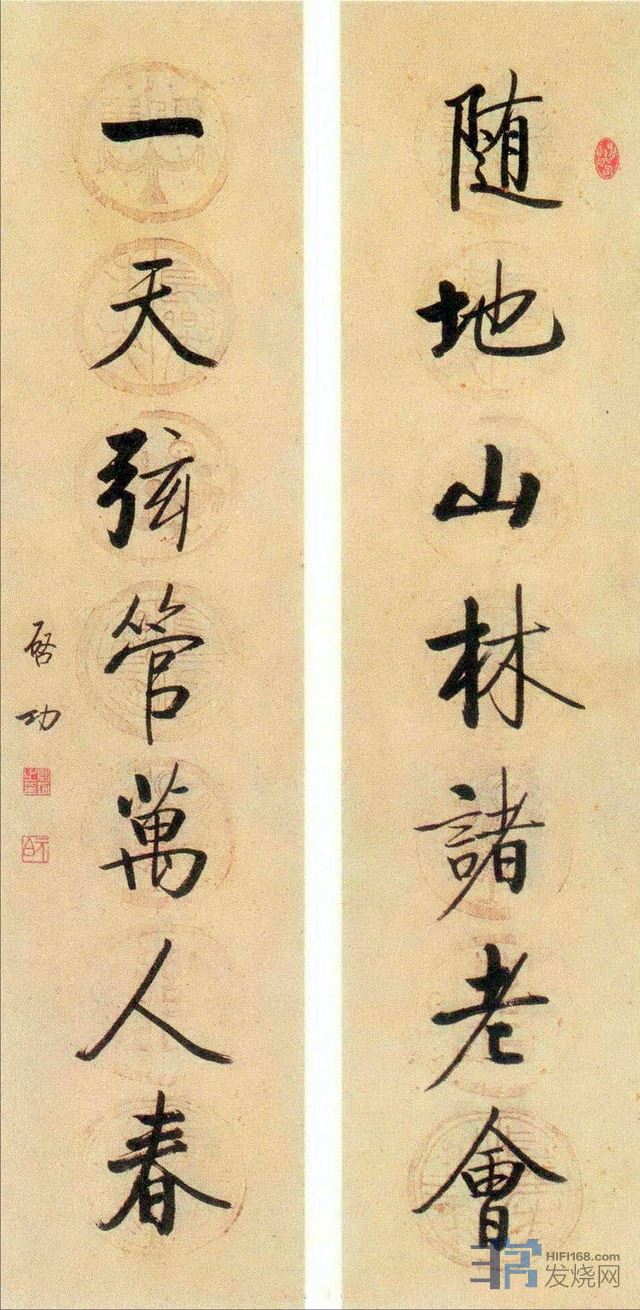 随地山林諸老會
一天弦管萬人春
啓功
HIFI168.com
发烧网